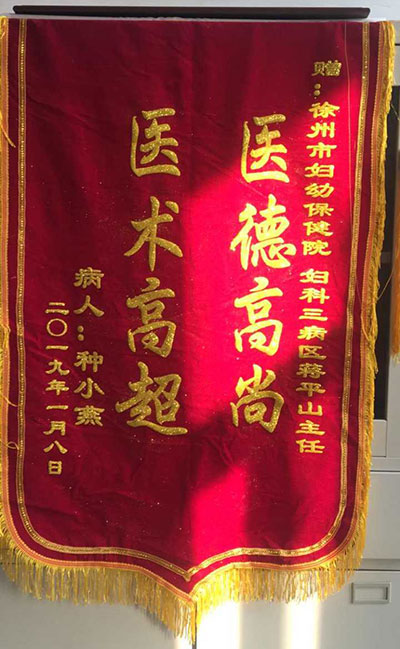 赠：徐州市妇幼保健院 妇科三病区蒋平山主任
医德高尚
医术高超
病人：种小燕
二〇一九年一月八日